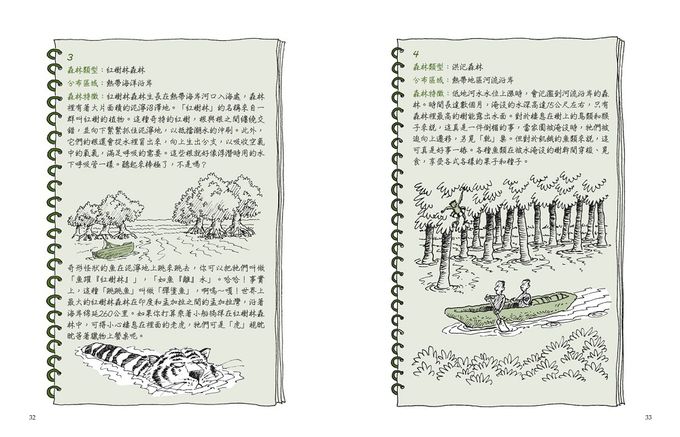 3
森林類型：紅樹林森林
分布區域：熱帶海洋沿岸
森林特徵：紅樹林森林生長在熱帶海岸河口入海處，森林
裡有著大片面積的泥濘沼澤地。「紅樹林」的名稱來自一
群叫紅樹的植物。這種奇特的紅樹，根與根之間傳統交
錯，且向下緊緊抓住泥濘地，以抵擋潮水的沖刷。此外，
它們的根還會從水裡冒出來，向上生出分支，以吸收空氣
中的氧氣，滿足呼吸的需要。這些根就好像浮潛時用的水
下呼吸管一樣。聽起來棒極了，不是嗎？
奇形怪狀的魚在泥濘地上跳來跳去，你可以把牠們叫做
「魚躍『紅樹林』」，「如魚『離』水」。哈哈！事實
上，這種「跳跳魚」叫做「彈塗魚」，啊嗚～嘎！世界上
最大的紅樹林森林在印度和孟加拉之間的孟加拉灣，沿著
海岸綿延260公里。如果你打算乘著小船徜徉在紅樹林森
林中，可得小心棲息在裡面的老虎，牠們可是「虎」視眈
眈等著獵物上營桌呢。
32
4
森林類型：洪氾森林
分布區域：熱帶地區河流沿岸
森林特徵：低地河水水位上漲時，會氾濫到河流沿岸的森
林。時間長達數個月，淹沒的水深高達15公尺左右，只有
森林裡最高的樹能露出水面。對於棲息在樹上的鳥類和猴
子來說，這真是一件倒楣的事，當家園被淹沒時，牠們被
迫向上遷移，另覓「靴」巢。但對於飢餓的魚類來說，這
可真是好事一樁。各種魚類在被水淹沒的樹幹間穿梭、覓
食，享受各式各樣的果子和種子。
33